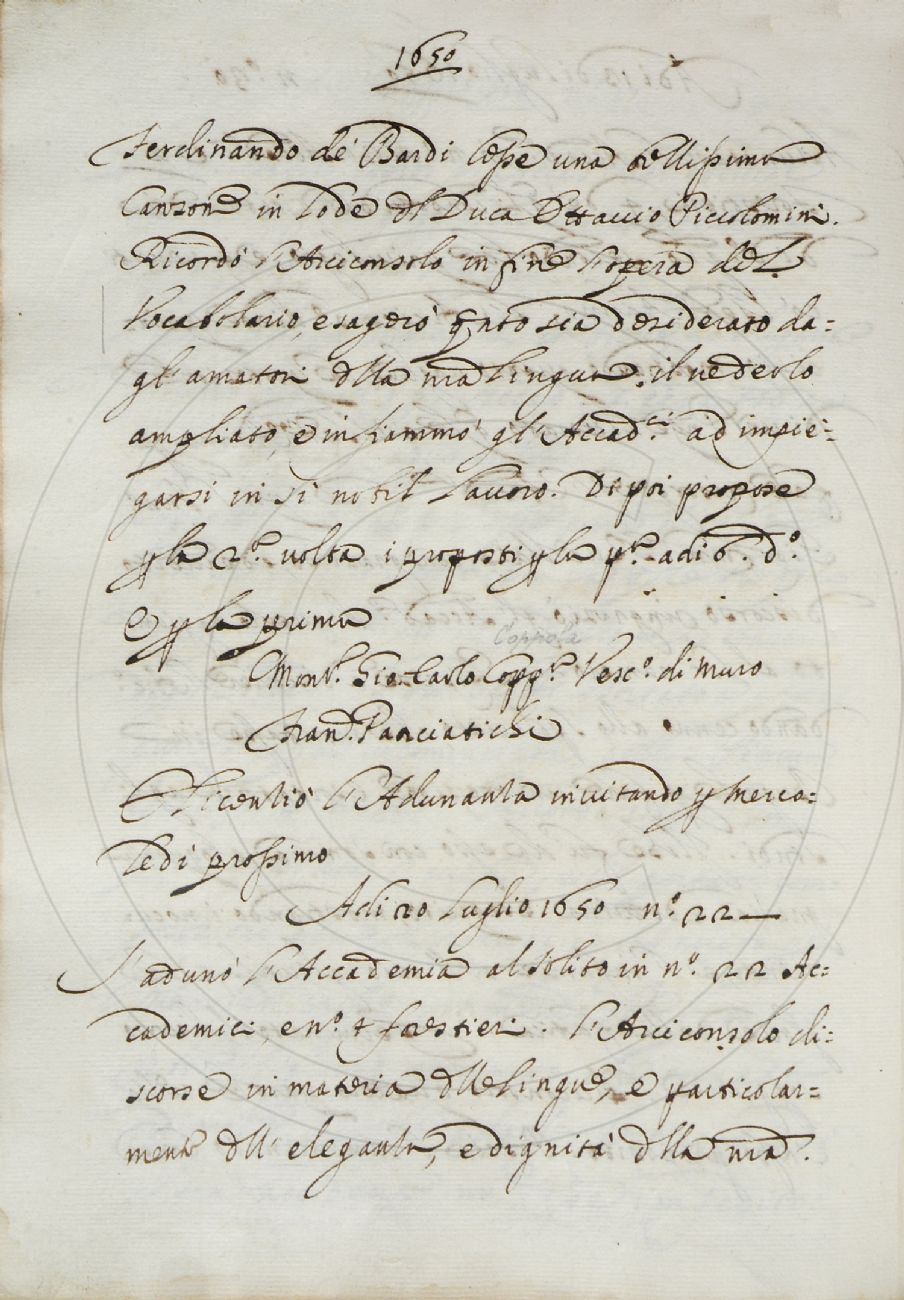 1650
Ferdinando de' Bardi lesse una bellissima
Canzone in lode dl Duca Ottavio Piccolomini.
Ricordò l'Arciconsolo in fine l'opera del
Vocabolario, esagerò qnto sia desiderato da=
gl'amatori dlla nra lingua, il vederlo
ampliato, e infiammò gl'Accad.ci ad impie=
garsi in sì nobil lavoro. Di poi propose
p la 2.a volta i proposti p la p.a adi 6. d.o
E p la prima
Coppola
Mons.r Gio: Carlo Copp.a Vesc.o di Muro
Fran.o Panciatichi
E licentiò l'Adunanza invitando p Merco=
ledì prossimo
Adi 20 Luglio 1650 n.o 22
S'adunò l'Accademia al solito in n.o 22 Ac=
cademici, e n.o 4 forestieri. L'Arciconsolo di=
scorse in materia dlle lingue, e particolar=
mente dll'eleganza, e dignità dlla nra.